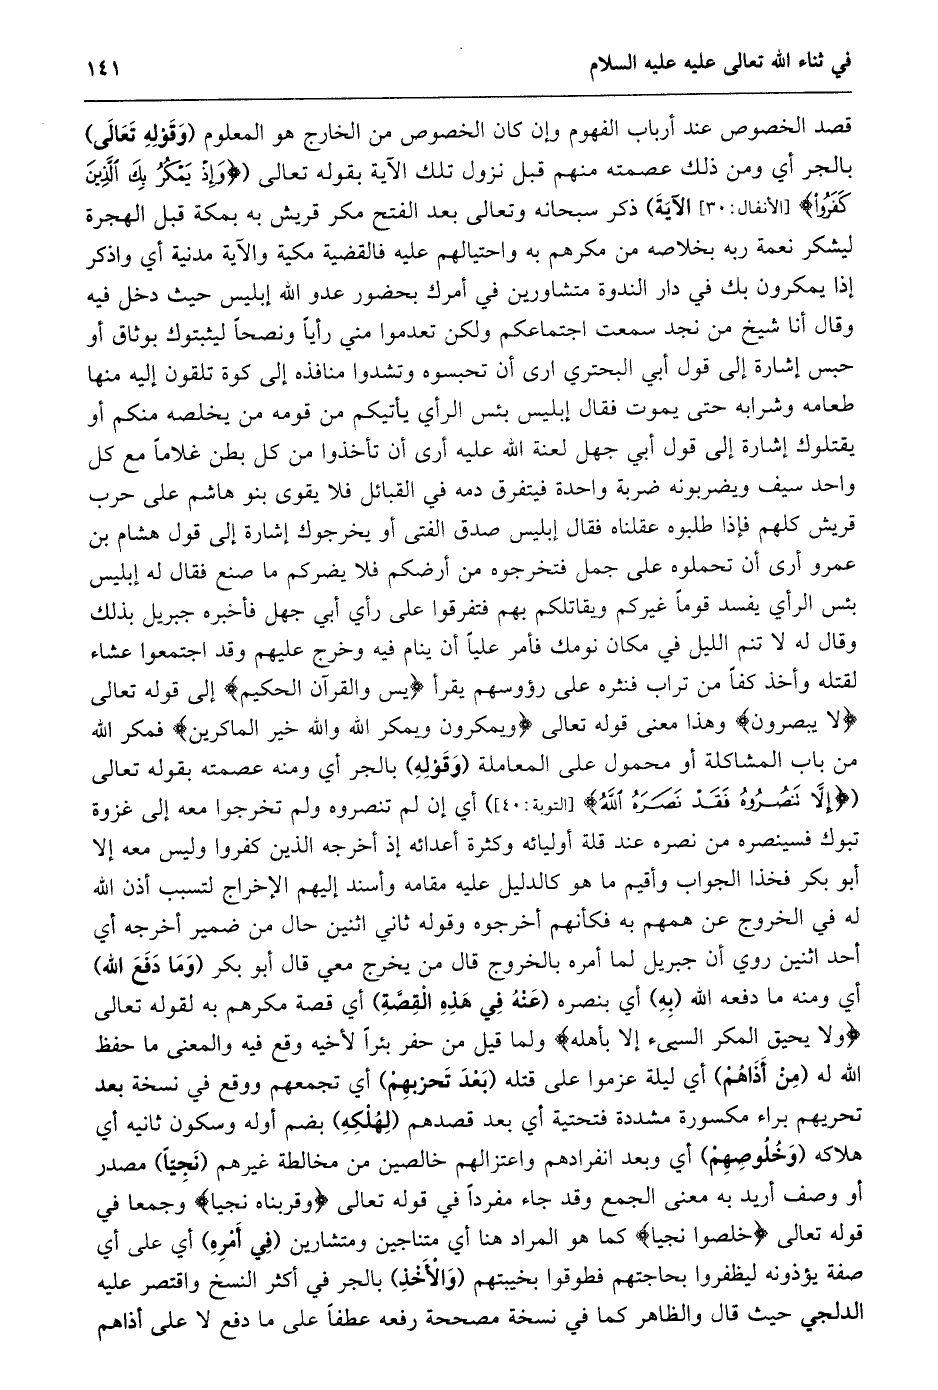 في ثناء الله تعالى عليه عليه السلام
١٤١
قصد الخصوص عند أرباب الفهوم وإن كان الخصوص من الخارج هو المعلوم (وَقَوْلِهِ تَعَالَى)
بالجر أي ومن ذلك عصمته منهم قبل نزول تلك الآية بقوله تعالى (﴿وَإِذْ يَمْكُرُ بِكَ ٱلَّذِينَ
كَفَرُوا﴾ [الأنفال: ٣٠] الآيَةَ) ذكر سبحانه وتعالى بعد الفتح مكر قريش به بمكة قبل الهجرة
ليشكر نعمة ربه بخلاصه من مكرهم به واحتيالهم عليه فالقضية مكية والآية مدنية أي واذكر
إذا يمكرون بك في دار الندوة متشاورين في أمرك بحضور عدو الله إبليس حيث دخل فيه
وقال أنا شيخ من نجد سمعت اجتماعكم ولكن تعدموا مني رأياً ونصحاً ليثبتوك بوثاق أو
حبس إشارة إلى قول أبي البحتري ارى أن تحبسوه وتشدوا منافذه إلى كوة تلقون إليه منها
طعامه وشرابه حتى يموت فقال إبليس بئس الرأي يأتيكم من قومه من يخلصه منكم أو
يقتلوك إشارة إلى قول أبي جهل لعنة الله عليه أرى أن تأخذوا من كل بطن غلاماً مع كل
واحد سيف ويضربونه ضربة واحدة فيتفرق دمه في القبائل فلا يقوى بنو هاشم على حرب
قريش كلهم فإذا طلبوه عقلناه فقال إبليس صدق الفتى أو يخرجوك إشارة إلى قول هشام بن
عمرو أرى أن تحملوه على جمل فتخرجوه من أرضكم فلا يضركم ما صنع فقال له إبليس
بئس الرأي يفسد قوماً غيركم ويقاتلكم بهم فتفرقوا على رأي أبي جهل فأخبره جبريل بذلك
وقال له لا تنم الليل في مكان نومك فأمر علياً أن ينام فيه وخرج عليهم وقد اجتمعوا عشاء
لقتله وأخذ كفاً من تراب فنثره على رؤوسهم يقرأ ﴿يس والقرآن الحكيم﴾ إلى قوله تعالى
﴿لا يبصرون﴾ وهذا معنى قوله تعالى ﴿ويمكرون ويمكر الله والله خير الماكرين﴾ فمكر الله
من باب المشاكلة أو محمول على المعاملة (وَقَوْلِهِ) بالجر أي ومنه عصمته بقوله تعالى
(﴿إِلَّا نَنصُرُوهُ فَقَدْ نَصَرَهُ ٱللَّهُ﴾ [التوبة: ٤٠]) أي إن لم تنصروه ولم تخرجوا معه إلى غزوة
تبوك فسينصره من نصره عند قلة أوليائه وكثرة أعدائه إذ أخرجه الذين كفروا وليس معه إلا
أبو بكر فخذا الجواب وأقيم ما هو كالدليل عليه مقامه وأسند إليهم الإخراج لتسبب أذن الله
له في الخروج عن همهم به فكأنهم أخرجوه وقوله ثاني اثنين حال من ضمير أخرجه أي
أحد اثنين روي أن جبريل لما أمره بالخروج قال من يخرج معي قال أبو بكر (وَمَا دَفَعَ الله)
أي ومنه ما دفعه الله (بِهِ) أي بنصره (عَنْهُ فِي هَذِهِ الْقِصَّةِ) أي قصة مكرهم به لقوله تعالى
﴿ولا يحيق المكر السيىء إلا بأهله﴾ ولما قيل من حفر بئراً لأخيه وقع فيه والمعنى ما حفظ
الله له (مِنْ أَذَاهُمْ) أي ليلة عزموا على قتله (بَعْدَ تَحزبِهِمْ) أي تجمعهم ووقع في نسخة بعد
تحريهم براء مكسورة مشددة فتحتية أي بعد قصدهم (لِهُلْكِهِ) بضم أوله وسكون ثانيه أي
هلاكه (وَخُلُوصِهِمْ) أي وبعد انفرادهم واعتزالهم خالصين من مخالطة غيرهم (نَجِيّاً) مصدر
أو وصف أريد به معنى الجمع وقد جاء مفرداً في قوله تعالى ﴿وقربناه نجيا﴾ وجمعا في
قوله تعالى ﴿خلصوا نجيا﴾ كما هو المراد هنا أي متناجين ومتشارين (فِي أَمْرِهِ) أي على أي
صفة يؤذونه ليظفروا بحاجتهم فطوقوا بخيبتهم (وَالْأَخْذِ) بالجر في أكثر النسخ واقتصر عليه
الدلجي حيث قال والظاهر كما في نسخة مصححة رفعه عطفاً على ما دفع لا على أذاهم